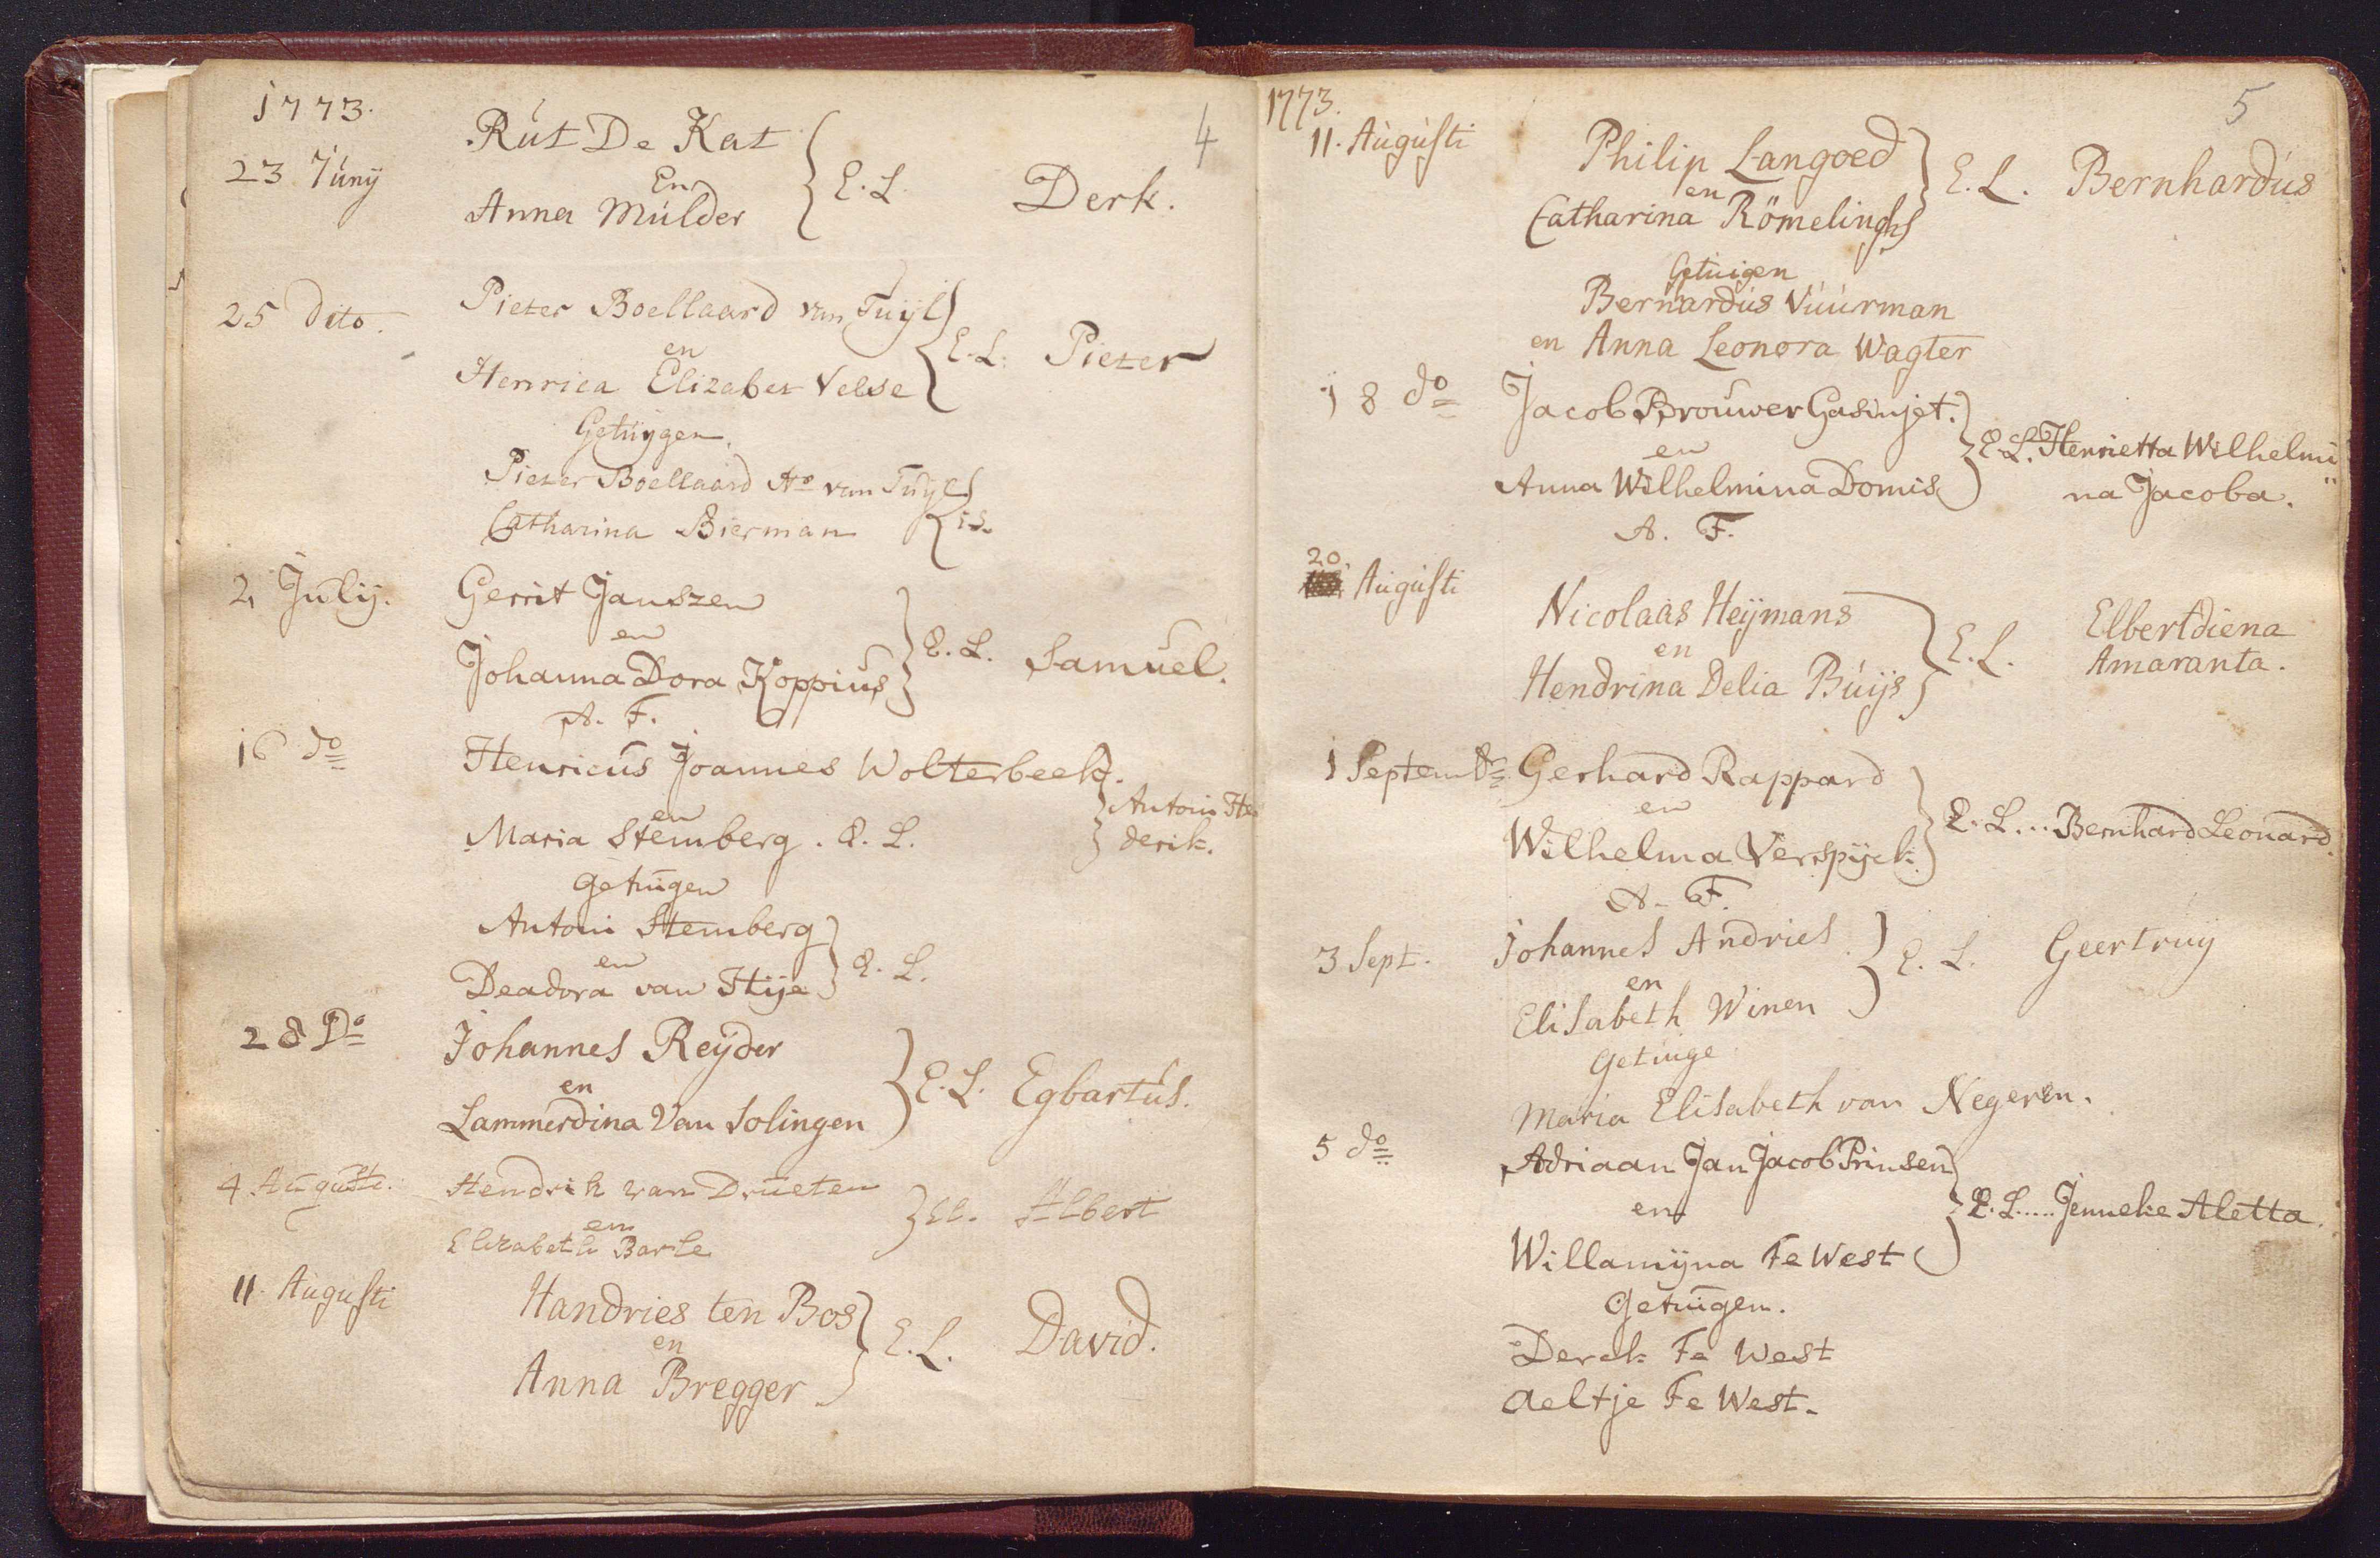 1773.
4
23 Júny Rút De Kat
En E. L. Derk.
Anna Múlder
25 dito. Pieter Boellaard van Tuijl
en E. L. Pieter
Henrica Elizabet Velse
Getuygen.
Pieter Boellaard Ao van Tuijl
Catharina Bierman
2 Julij. Gerrit Janszen
en E. L. Samuel.
Johanna Dora Koppius
A. F.
16 do Henricus Joannes Wolterbeek.
en Antoni Hen
Maria Stemberg. E. L. derik.
getuigen
Antoni Stemberg
en E. L.
Deadora van Stije
28 Do Johannes Reyder
en E. L. Egbartús.
Lammerdina Van Solingen
4 Auguste. Hendrik van Drueten
en El. Albert
Elizabeth Barle
11. Augusti Handries ten Bos
en E. L. David.
Anna Bregger
1773.
5
11. Augusti Philip Langoed
en E. L. Bernhardús
Catharina Römelinghs
Getuigen
Bernardus Vúúrman
en Anna Leonora Wagter
18 do Jacob Brouwer Gasinjet.
en E. L. Henrietta Wilhelmi
Anna Wilhelmina Domis na Jacoba.
A. F.
20.
Augusti Nicolaas Heijmans Elbertdiena
en E. L. Amaranta.
Hendrina Delia Búijs
1 Septembr Gerhard Rappard
en E. L... Bernhard Leonard.
Wilhelma Verspijck
A. F.
3 Sept. Johannes Andries
en E. L. Geertruy
Elisabeth Winen
Getuige
Maria Elisabeth van Negeren.
5 do Adriaan Jan Jacob Prinsen
en E. L..... Jenneke Aletta.
Willamijna Fe West
Getuigen.
Derck Fe West
aeltje Fe West.